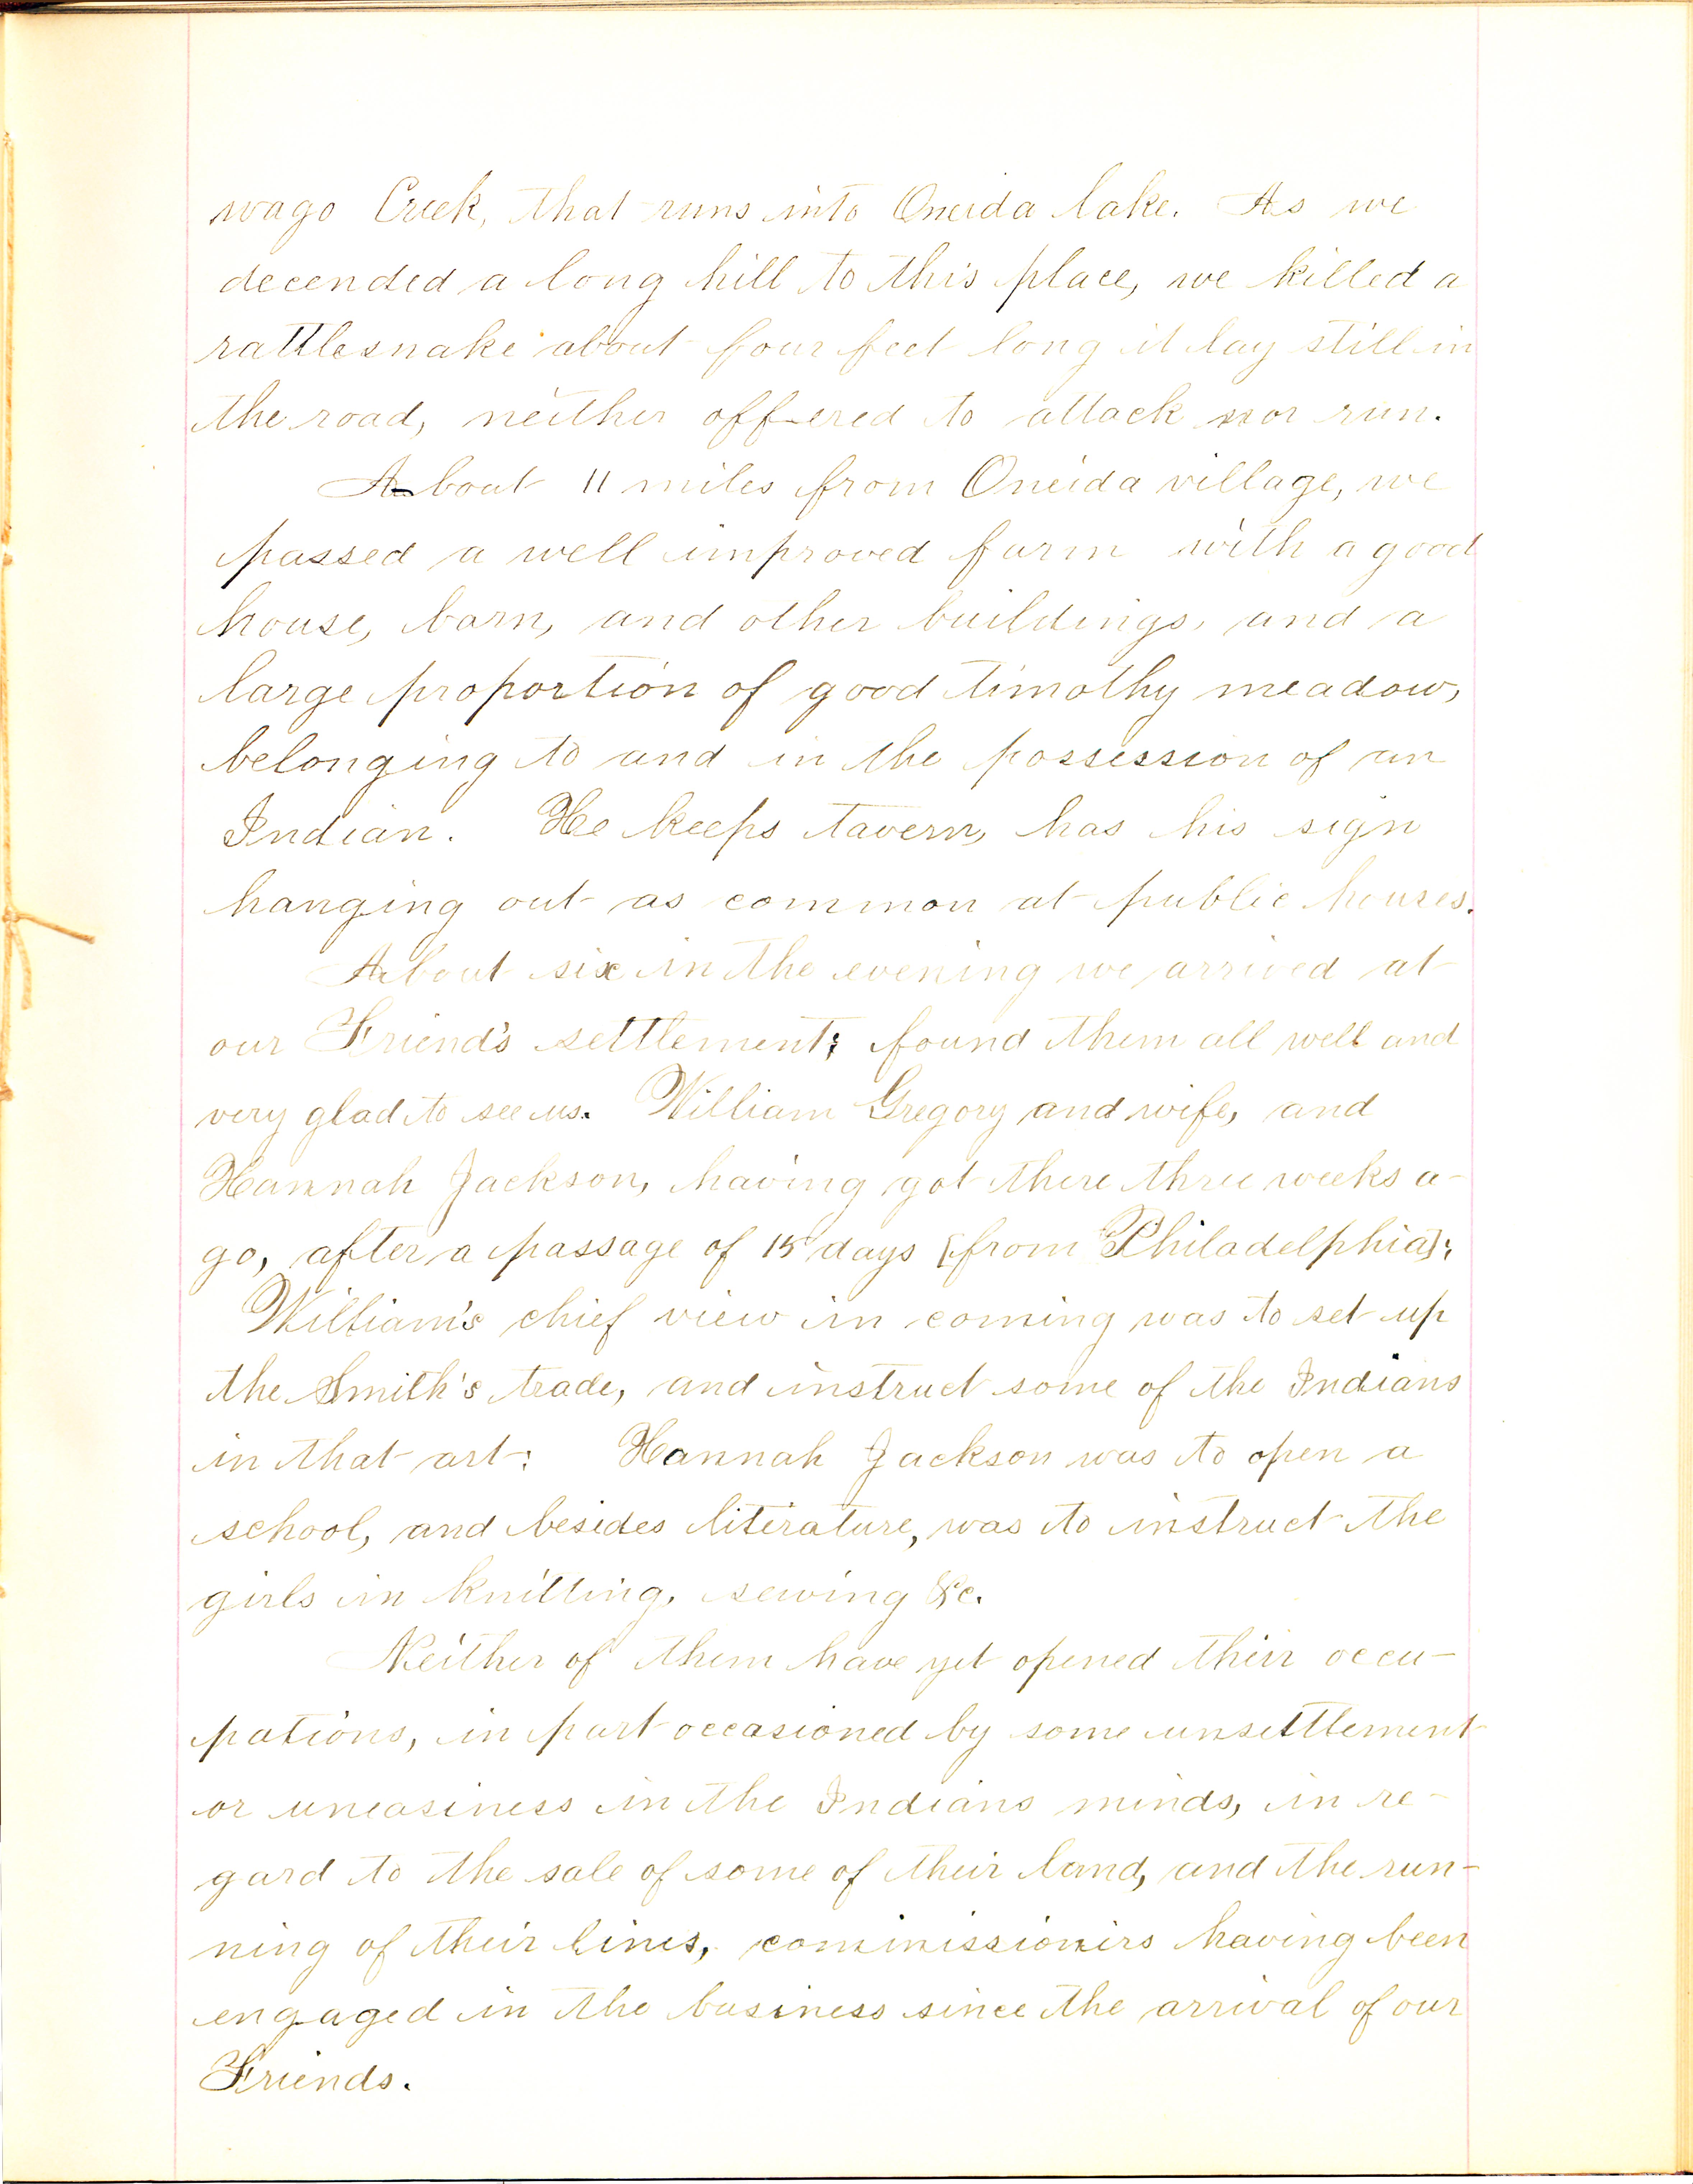 wago Creek, that runs into Oneida lake. As we
decended a long hill to this place, we killed a
rattlesnake about four feet long it lay still in
the road, neither offered to attack nor run.
About 11 miles from Oneida village, we
passed a well improved farm with a good
house, barn, and other buildings, and a
large proportion of good timothy meadow,
belonging to and in the possession of an
Indian. He keeps tavern, has his sign
hanging out as common at public houses.
About six in the evening we arrived at
our Friend's settlement; found them all well and
very glad to see us. William Gregory and wife, and
Hannah Jackson, having got there three weeks a-
go, after a passage of 15 days [from Philadelphia];
William's chief view in coming was to set up
the Smith's trade, and instruct some of the Indians
in that art: Hannah Jackson was to open a
school, and besides literature, was to instruct the
girls in knitting, sewing &c.
Neither of them have yet opened their occu-
pations, in part occasioned by some unsettlement
or uneasiness in the Indians minds, in re-
gard to the sale of some of their land, and the run-
ning of their lines, commissioners having been
engaged in the business since the arrival of our
Friends.